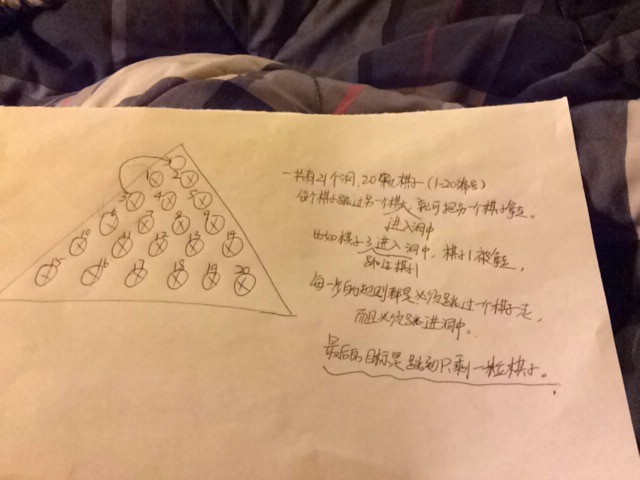 1 2
3 4 5
6 7 8 9
10 11 12 13 14
15 16 17 18 19 20
一共有21个洞，20颗棋子（1-20编号）
每个棋子跳过另一个棋子，就可把另一个棋子拿走。
进入洞中
比如棋子3进入洞中，棋子1被拿走，
跳过棋子1
每一步的规则都是必须跳过一个棋子走，
而且必须跳进洞中。
最后的目标是跳到只剩一粒棋子。